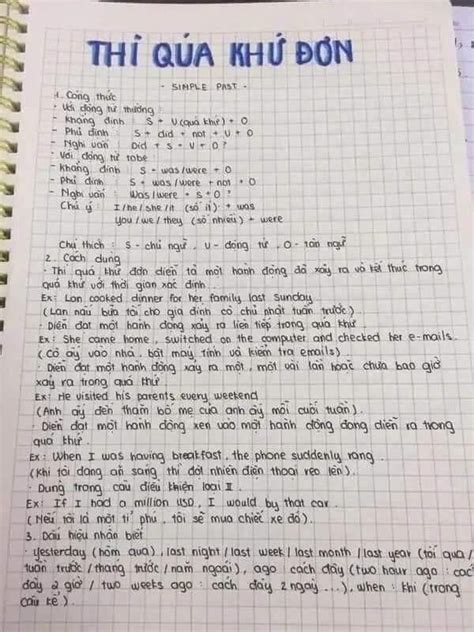 THÌ QÚA KHỨ ĐƠN
- SIMPLE PAST -
1. Công thức
• Với động từ thường:
- Khẳng định : S + V(quá khứ) + O
- Phủ định : S + did + not + V + O
- Nghi vấn : Did + S + V + O ?
• Với động từ tobe
- Khẳng định : S + was/were + O
- Phủ định : S + was/were + not + O
- Nghi vấn : Was/were + S + O ?
Chú ý : I/he/she/it (số ít) + was
You/we/they (số nhiều) + were
Chú thích : S - chủ ngữ , V - động từ , O - tân ngữ
2. Cách dùng
• Thì quá khứ đơn diễn tả một hành động đã xảy ra và kết thúc trong
quá khứ với thời gian xác định .
Ex: Lan cooked dinner for her family last Sunday
(Lan nấu bữa tối cho gia đình cô chủ nhật tuần trước) .
• Diễn đạt một hành động xảy ra liên tiếp trong quá khứ
Ex: She came home , switched on the computer and checked her e-mails.
(Cô ấy vào nhà , bật máy tính và kiểm tra emails)
• Diễn đạt một hành động xảy ra một , một vài lần hoặc chưa bao giờ
xảy ra trong quá thứ
Ex: He visited his parents every weekend
(Anh ấy đến thăm bố mẹ của anh ấy mỗi cuối tuần) .
• Diễn đạt một hành động xen vào một hành động đang diễn ra trong
quá khứ .
Ex: When I was having breakfast , the phone suddenly rang .
(Khi tôi đang ăn sáng thì đột nhiên điện thoại reo lên) .
• Dùng trong câu điều kiện loại II .
Ex: If I had a million USD , I would by that car .
(Nếu tôi là một tỉ phú , tôi sẽ mua chiếc xe đó) .
3. Dấu hiệu nhận biết
• Yesterday (hôm qua) , last night / last week / last month / last year (tối qua /
tuần trước / tháng trước / năm ngoái) , ago : cách đây (two hour ago :
đây 2 giờ / two weeks ago : cách đây 2 ngày ...) , when : khi (trong
câu kể) .